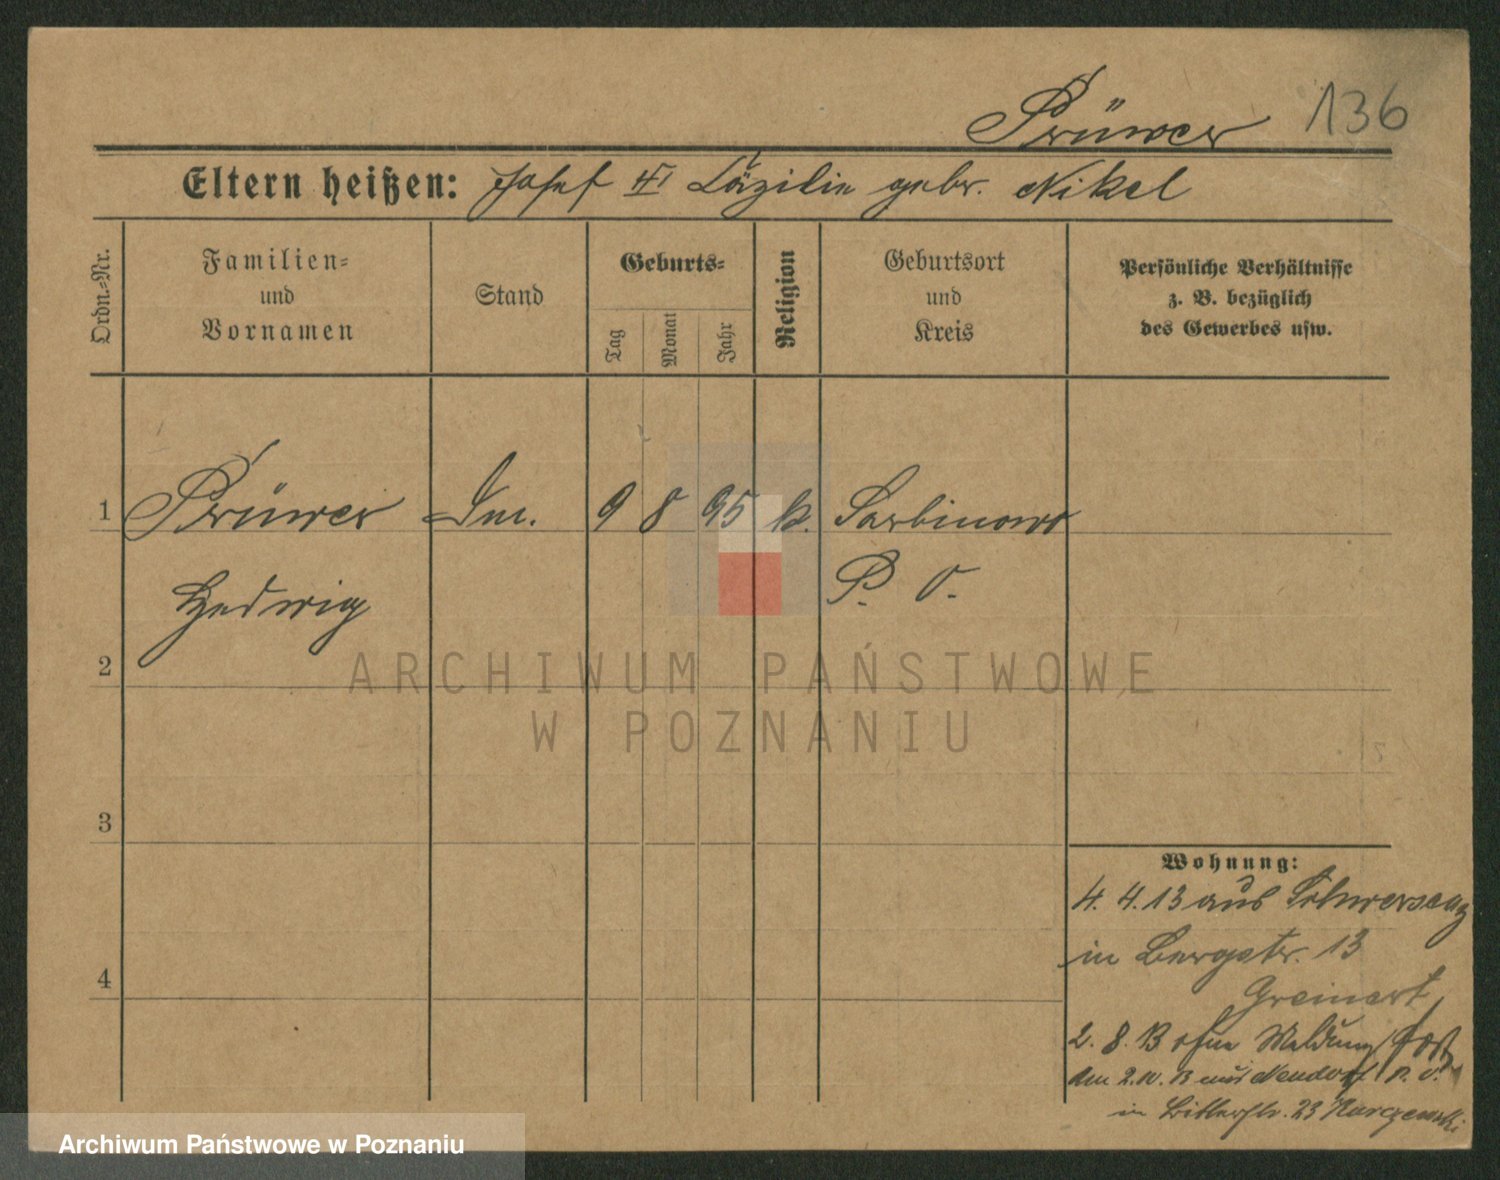 Prüwer 136
Eltern heißen: Josef u Cäzilie gebr. Nikel
Ordn.-Nr.
Familien-
und
Vornamen
Stand
Geburts-
Tag
Monat
Jahr
Religion
Geburtsort
und
Kreis
Persönliche Verhältnisse
z. B. bezüglich
des Gewerbes usw.
1 Prüwer 9 8 95 k. Sarbinowo
Hedwig P. O.
2
3
4
Wohnung:
4. 4. 13 aus Schwersenz
in Bergstr. 13
Greinert
2. 8. 13 ohne Meldung fort
den 2.10.13 aus Neudorf P. O.
in Ritterstr. 23 Karczewski
ARCHIWUM PAŃSTWOWE
W POZNANIU
Archiwum Państwowe w Poznaniu